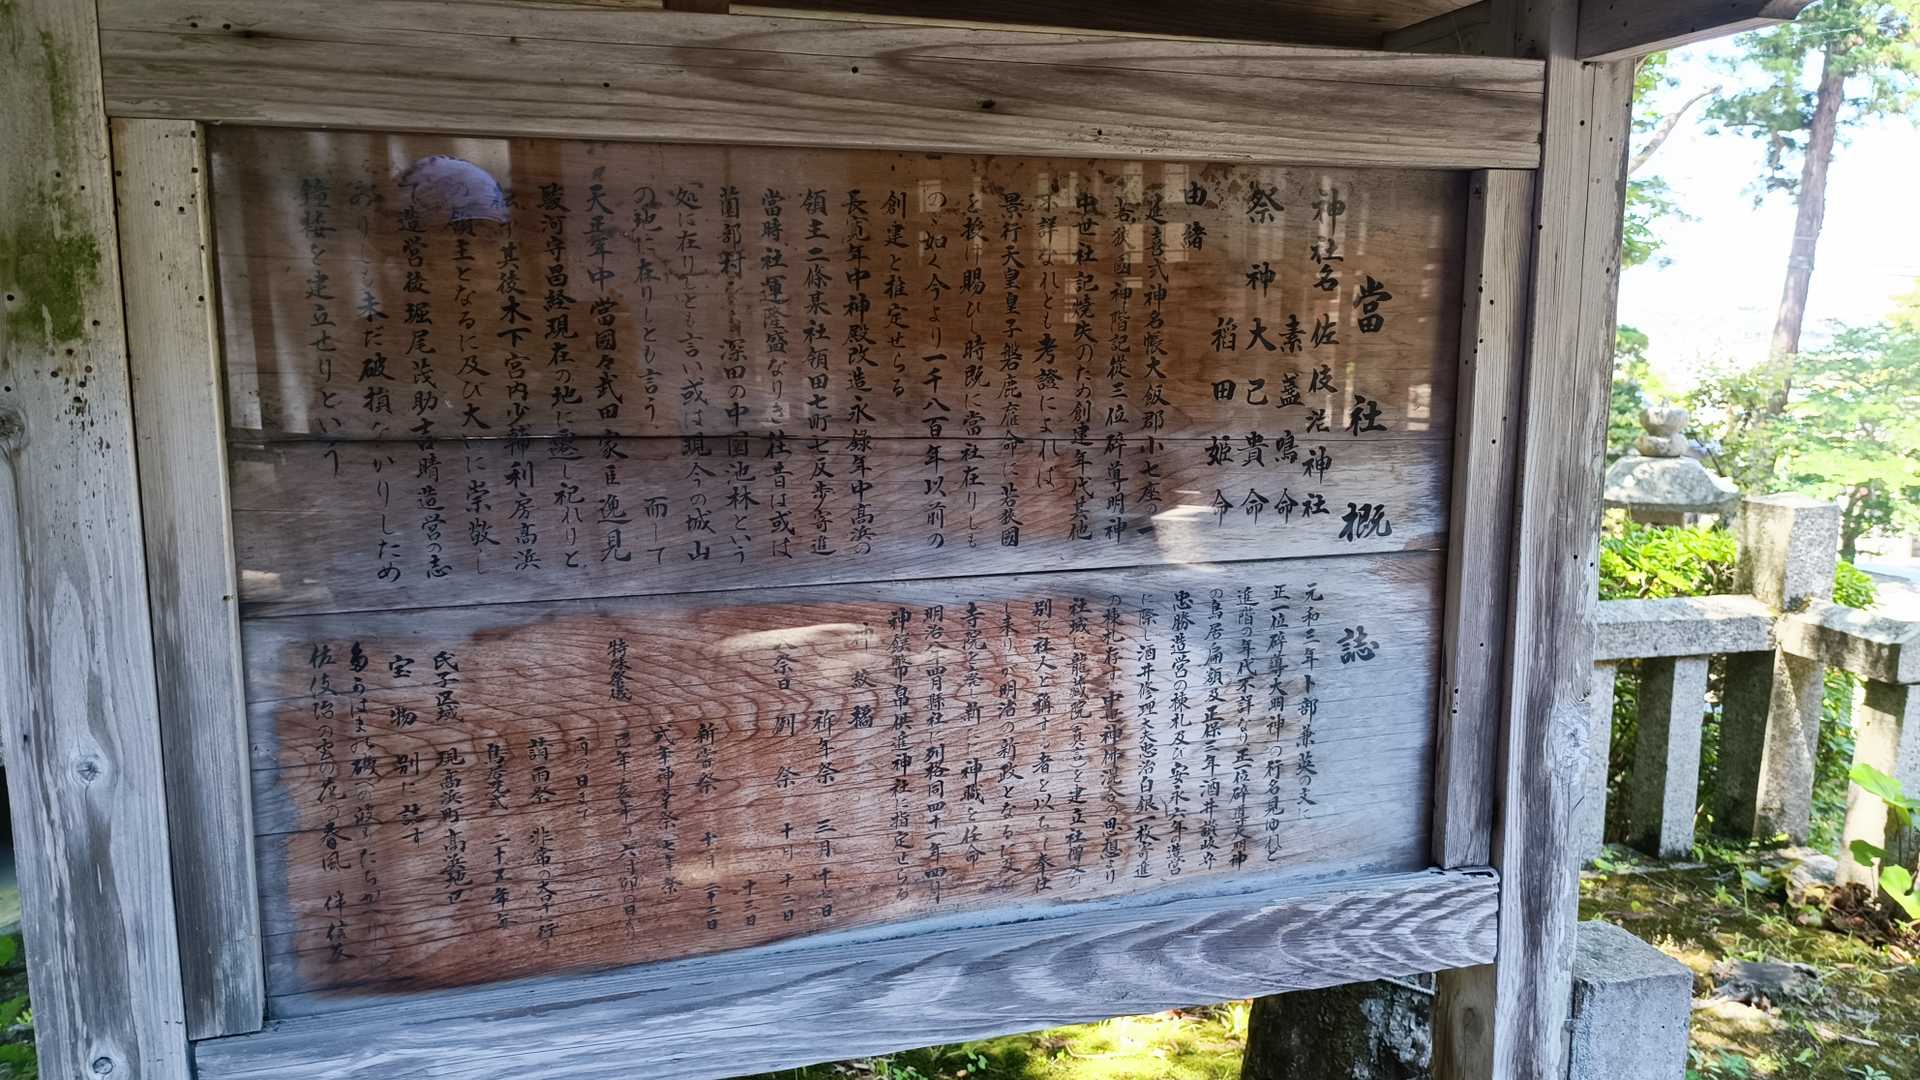 當社概誌
神社名 佐伎治神社
素盞嗚命
祭神 大己貴命
稻田姫命
由緒
延喜式神名帳大飯郡小七座の一
若狭國神階記從三位碎導明神
中世社記焼失のため創建年代其他
不詳なれとも考證によれは
景行天皇皇子磐鹿廣命に若狭國
を授け賜ひし時既に當社在りしも
のゝ如く今より一千八百年以前の
創建と推定せらる
長寛年中神殿改造永録年中髙浜の
領主二條某社領田七町七反歩寄進
當時社運隆盛なりき往昔は或は
薗部村 深田の中国池林という
処に在りしとも言い或は現今の城山
の地に在りしとも言う 而して
天正年中當國々武田家臣逸見
駿河守昌経現在の地に遷し祀れりと
其後木下宮内少輔利房髙浜
の領主となるに及び大いに崇敬し
て造営後堀尾茂助吉晴造営の志
ありしも未だ破損なかりしため
鐘楼を建立せりという
元和三年卜部兼英の文に
正一位碎導大明神の行名見ゆれと
進階の年代不詳なり正一位碎導大明神
の鳥居扁額及正保三年酒井
忠勝造営の棟札及ひ安永六年造営
に際し酒井修理大夫忠治白銀一枚寄進
の棟札存す中世神佛混合の思想より
社域に龍蔵院 を建立社僧及ひ
別に社人と稱する者を以ちて奉仕
し来りしか明治の新政となるに及ひ
寺院を廃し新に神職を任命
明治八年四月縣社に列格同四十一年四月
神饌幣帛供進神社に指定せらる
祭日 祈年祭 三月十七日
例祭 十月十二日
十三日
新嘗祭 十一月二十三日
特殊祭儀
式年神事祭七年祭
巳年亥年の六月卯の日より
酉の日まて
請雨祭 非常の大旱に行
鳥居式 二十五年毎
氏子区域 現高浜町高浜地区
宝物 別に誌す
佐伎治の宮の花の春風 伴信友